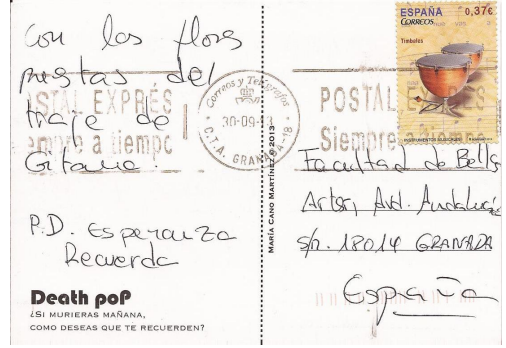 Con las flores
puestas del
traje de
Gitana.
P.D. Esperanza
Recuerda
Death pop
¿SI MURIERAS MAÑANA,
COMO DESEAS QUE TE RECUERDEN?
MARÍA CANO MARTÍNEZ © 2013
Correos y Telégrafos
30-09-13
C.T.A. GRANADA-18
POSTAL EXPRÉS
Siempre a tiempo
ESPAÑA 0,37€
CORREOS
Timbales
INSTRUMENTOS MUSICALES
Facultad de Bellas
Artes, Avd. Andalucía
s/n. 18014 GRANADA
España